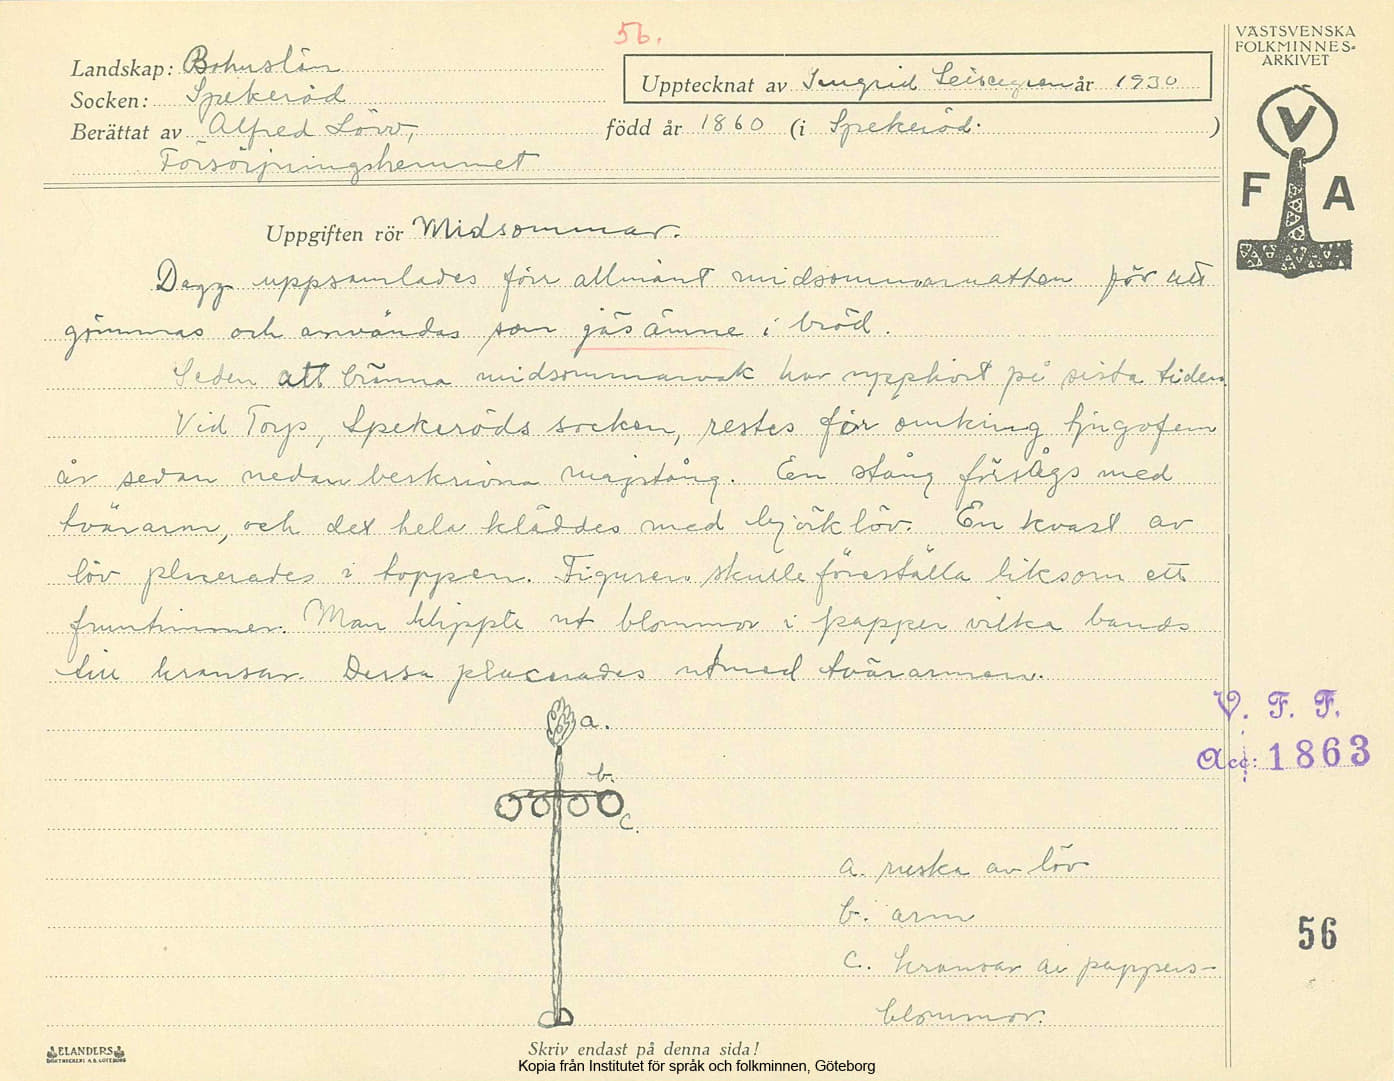 56.
VÄSTSVENSKA
FOLKMINNES-
ARKIVET
Landskap: Bohuslän
Upptecknat av Ingrid år 1930
Socken: Spekeröd
Berättat av Alfred Lövv, född år 1860 (i Spekeröd. )
Försörjningshemmet
V
F A
Uppgiften rör Midsommar.
Dagg uppsamlades förr allmänt midsommarnatten för att
gömmas och användas som jäsämne i bröd.
Seden att bränna midsommarvak har upphört på sista tiden.
Vid Torp, Spekeröds socken, restes för omkring tjugofem
år sedan nedan beskrivna majstång. En stång försågs med
tvärarm, och det hela kläddes med björklöv. En kvast av
löv placerades i toppen. Figuren skulle föreställa liksom ett
fruntimmer. Man klippte ut blommor i papper vilka bands
till kransar. Dessa placerades utmed tvärarmen.
V. F. F.
Acc: 1863
a.
b.
c.
a. ruska av löv
b. arm
56
c. kransar av pappers-
blommor.
ELANDERS
BOKTRYCKERI A.B. GÖTEBORG
Skriv endast på denna sida!
Kopia från Institutet för språk och folkminnen, Göteborg